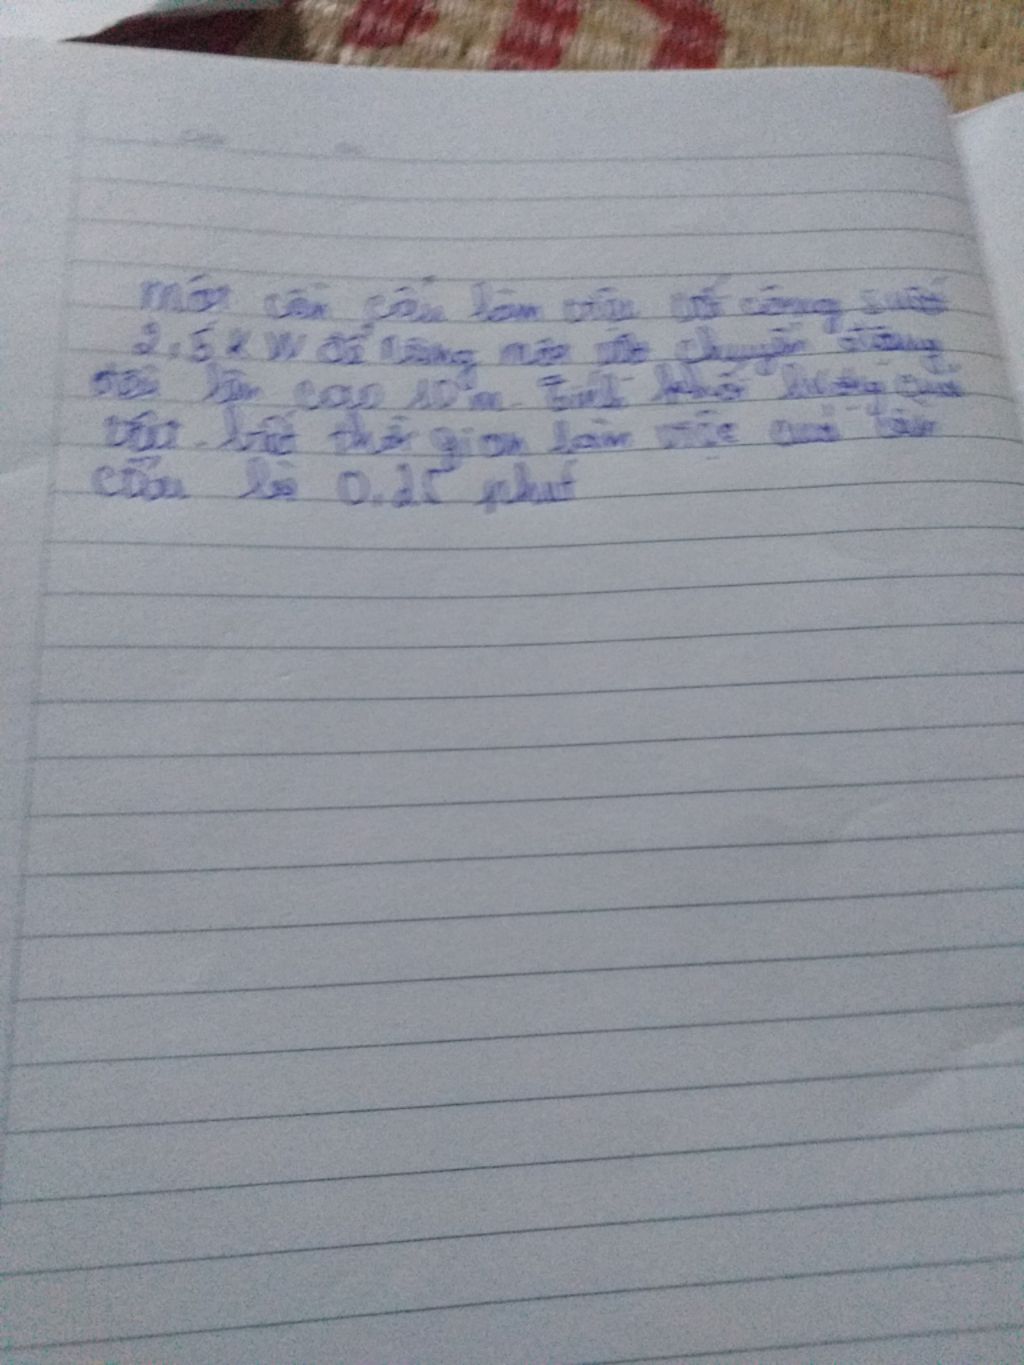 một cần cẩu làm việc với công suất
2,5 kW để nâng một vật chuyển động
đều lên cao 10 m. Tính khối lượng của
vật. biết thời gian làm việc của cần
cẩu là 0,25 phút